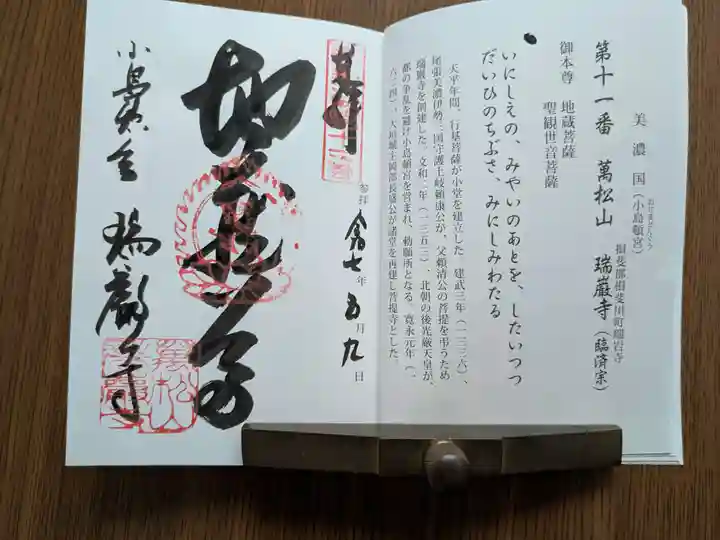 美濃国(小島頓宮)
おじまとんぐう
揖斐郡揖斐川町瑞岩寺
第十一番 萬松山 瑞巌寺(臨済宗)
御本尊 地蔵菩薩
聖観世音菩薩
いにしえの、みやいのあとを、したいつつ
だいひのちぶさ、みにしみわたる
天平年間、行基菩薩が小堂を建立した。建武三年(一三三六)、
尾張美濃伊勢三国守護土岐頼康公が、父頼清公の菩提を弔うため
瑞巌寺を創建した。文和二年(一三五三)、北朝の後光厳天皇が、
都の争乱を避け小島頓宮を営まれ、勅願所となる。寛永元年(一
六二四)、大垣城主岡部長盛公が諸堂を再建し菩提寺とした。
奉拝
参拝 令七年五月九日
地蔵尊
小島頓宮 瑞巌寺
萬松山